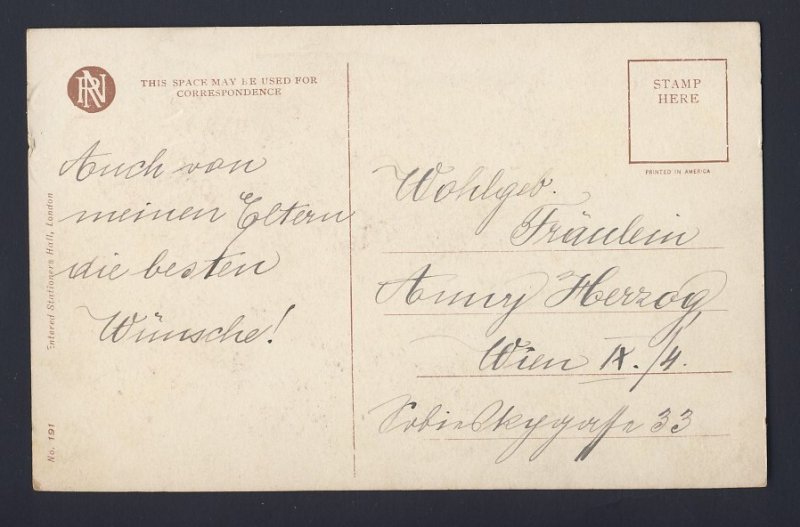 RN
THIS SPACE MAY BE USED FOR
CORRESPONDENCE
STAMP
HERE
PRINTED IN AMERICA
Auch von
meinen Eltern
die besten
Wünsche!
Wohlgeb.
Fräulein
Anny Herzog
Wien IX./4.
Sobieskygasse 33
Entered Stationers Hall, London
No. 191